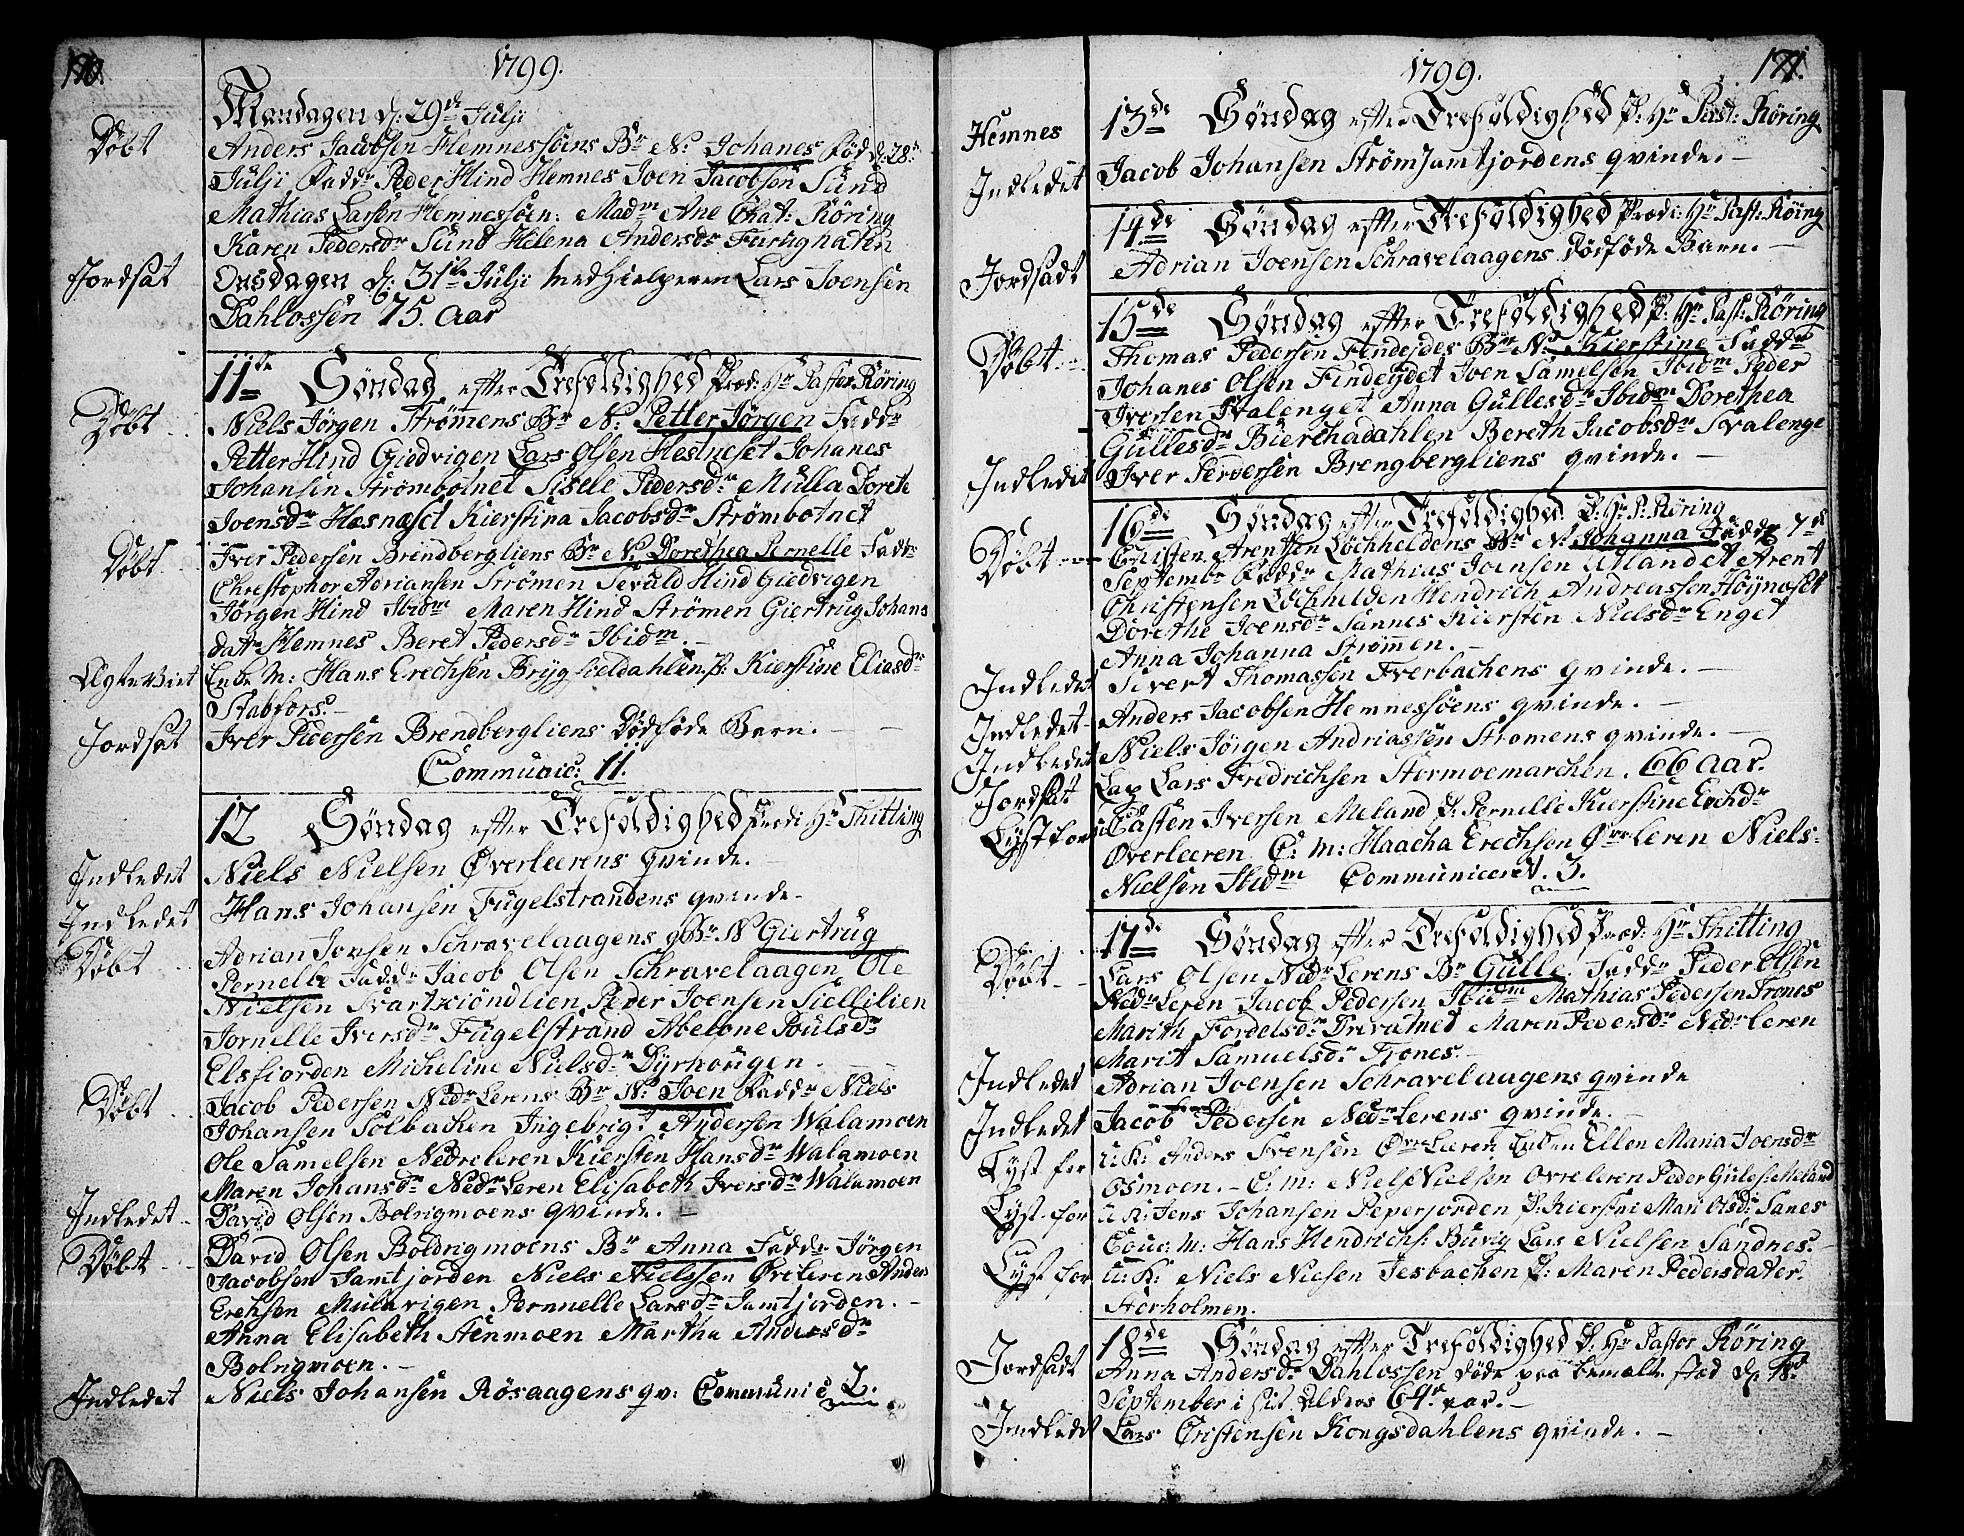 170.
1799.
Mandagen d: 29de Julji
Döbt
Anders Jacobsen Hemnessöens Bn N: Johanes Född: 28de
Julji Faddr Peder Hind Hemnes Joen Jacobsen Sund
Mathias Larsen Hemnessöen: Madm Ane Chat: Röring
Karen Pedersdr Sund Helena Andersdr Furugnaten
Jordsat
Onsdagen d: 31te Julji Medhielperen Lars Joensen
Dahlossen 75. Aar
11te Söndag efter Trefoldighed Præd: Hr Pastor Röring
Döbt
Niels Jörgen Strömens Bn N: Petter Jörgen Faddr
Petter Hind Giedvigen Lars Olsen Hestneset Johanes
Johansen Strömbotnet Sisele Pedersdr Mulla Dorete
Joensdr Hæsnæset Kierstina Jacobsdr Strömbotnet
Döbt
Iver Pedersen Brendbergliens Bn N: Dorethea Pernelle Faddr
Christophor Adriansen Strömen Sevald Hind Giedvigen
Jörgen Hind Ibidm Maren Hind Strömen Giertrug Johans
datr Hemnes Beret Pedersdr Ibidm.
Ægteviet
Enke M: Hans Erechsen Bryg fieldahlen P: Kierstine Eliasdr
Stabfors.
Jordsat
Iver Pedersen Brendbergliens Dödföde Barn.
Communic: 11.
12 Söndag efter Trefoldighed Prædi: Hr Thitting
Indledet
Niels Nielsen Överleerens Qvinde.
Indledet
Hans Johansen Fugelstrandens qvinde.
Döbt
Adrian Jonsen Schravelaagens Bn N Giertrug
Pernelle Faddr Jacob Olsen Schravelaagen Ole
Nielsen Svartkiöndlien Peder Joensen Siellilien
Jornelle Iversdr Fugelstrand Abelone Poulsdr
Elsfiorden Micheline Nielsdr Dyrhougen.
Döbt
Jacob Pedersen Nedr Lerens Bn N: Joen Faddr Niels
Johansen Solbacken Ingebrigt Andersen Walamoen
Ole Samelsen Nedreleren Kiersten Hansdr Walamoen
Maren Johansdr Nedr Leren Elisabeth Iversdr Walamoen
Indledet
David Olsen Bolrigmoens qvinde.
Döbt
David Olsen Boldrigmoens Bn Anna Faddr Jörgen
Jacobsen Jamtjorden Niels Nielssen Överleren Anders
Erechsen Mulavigen Pernnelle Larsdr Jamtjorden.
Anna Elisabeth Stenmoen Martha Andersdr
Bolrigmoen.
Indledet
Niels Johansen Rösaagens qv: Communic 2.
171.
1799.
Hemnes
13de Söndag efter Trefoldighed P: Hr Past: Röring
Indledet
Jacob Johansen Strömjamtjordens qvinde.
14de Söndag efter Trefoldighed Prædi: Hr Past: Röring
Jordsadt
Adrian Joensen Schravelaagens Dödföde Barn.
15de Söndag efter Trefoldighed P: Hr Past: Röring
Döbt
Thomas Pedersen Fendejdes Bn N: Kierstine Faddr
Johanes Olsen Findeydet Joen Samelsen Ibidm Peder
Iversen Svalenget Anna Gullesdr Ibidm Dorethea
Gullesdr Bierchadahlen Bereth Jacobsdr Svalenge
Indledet
Iver Perdersen Brengbergliens qvinde.
16de Söndag efter Trefoldighed P: Hr P: Röring
Döbt
Christen Arentsen Löchheldens Bn N: Johanna Född 7de
Septembr Faddr Mathias Joensen Utlandet Arent
Christensen Löchhelden Hendrich Andreassen Höynæset
Dorethe Joensdr Sannes Kiersten Nielsdr Enget
Anna Johanna Strömen.
Indledet
Sivert Thomassen Fverbachens qvinde.
Indledet
Anders Jacobsen Hemnessöens qvinde.
Indledet
Niels Jörgen Andriassen Stromens qvinde.
Jordsat
Lap Lars Fredrichsen Stormoemarchen. 66 Aar.
Lyst for
Casten Iversen Meland P: Pernelle Kierstine Erichdr
Överleeren C: M: Haacha Erechsen Övreleren Niels
Nielsen Ibidm Communiceret. 3.
17de Söndag efter Trefoldighed Præd: Hr Thitting
Döbt
Lars Olsen Nedr Lerens Bn Gulle Faddr Peder Olsen
Nedr Leren Jacob Pedersen Ibidm Mathias Pedersen Trones
Marith Fordelsdr Drevatnet Maren Pedersdr Nedr Leren
Marit Samuelsdr Trones.
Indledet
Adrian Joensen Schravelaugens qvinde
Indledet
Jacob Pedersen Nedr Lerens qvinde.
Lyst for
U: K: Anders Svensen Övr Leeren Enken Ellen Maria Joensdr
Osmoen. C: M: Niels Nielsen Ovreleren Peder Gulles: Meland
Lyst for
U: K: Jens Johansen Peperjorden P: Kierstine Mari Olsdr Sanes
Couc: M: Hans Hendrichs: Buvig Lars Nielsen Sandnes.
Lyst for
U: K: Niels Niesen Jesbachen P: Maren Pedersdater
Storholmen.
18de Söndag efter Trefoldighed P: Hr Pastor Röring
Jordsadt
Anna Andersdr Dahlossen döde paa bemalte sted d: 18de
September i sit Alders 64de aar.
Indledet
Lars Cristensen Kongsdahlens qvinde.